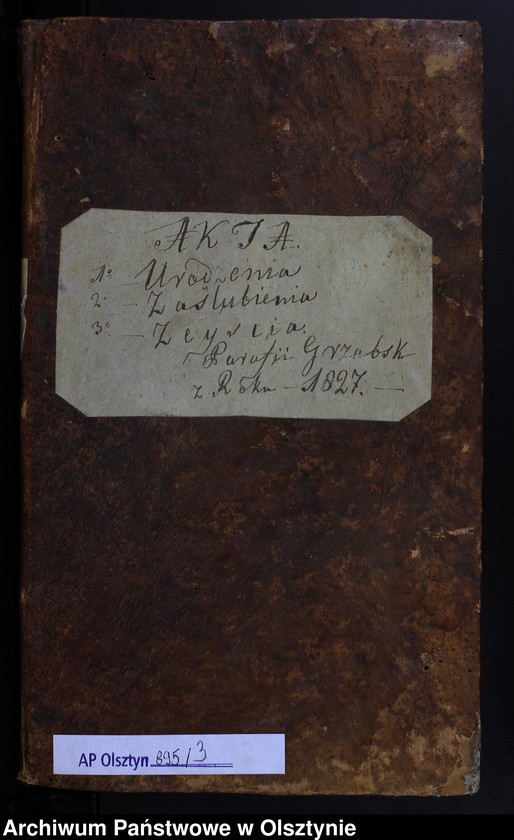 AKTA.
1º Urodzenia
2º – Zaślubienia
3º – Zeyscia.
Parafii Grzebsk
z Roku – 1827. –
AP Olsztyn 895/3
Archiwum Państwowe w Olsztynie